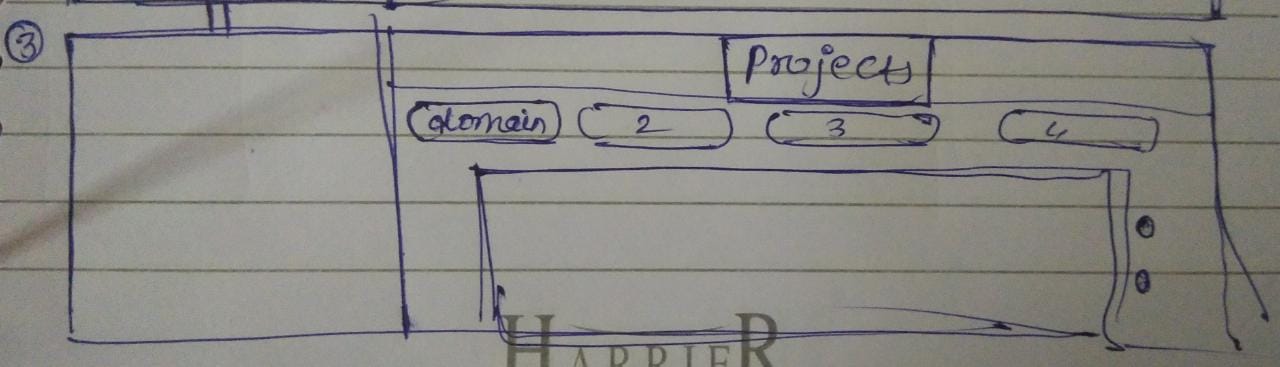 3
Projects
domain 2 3 4
HARRIER